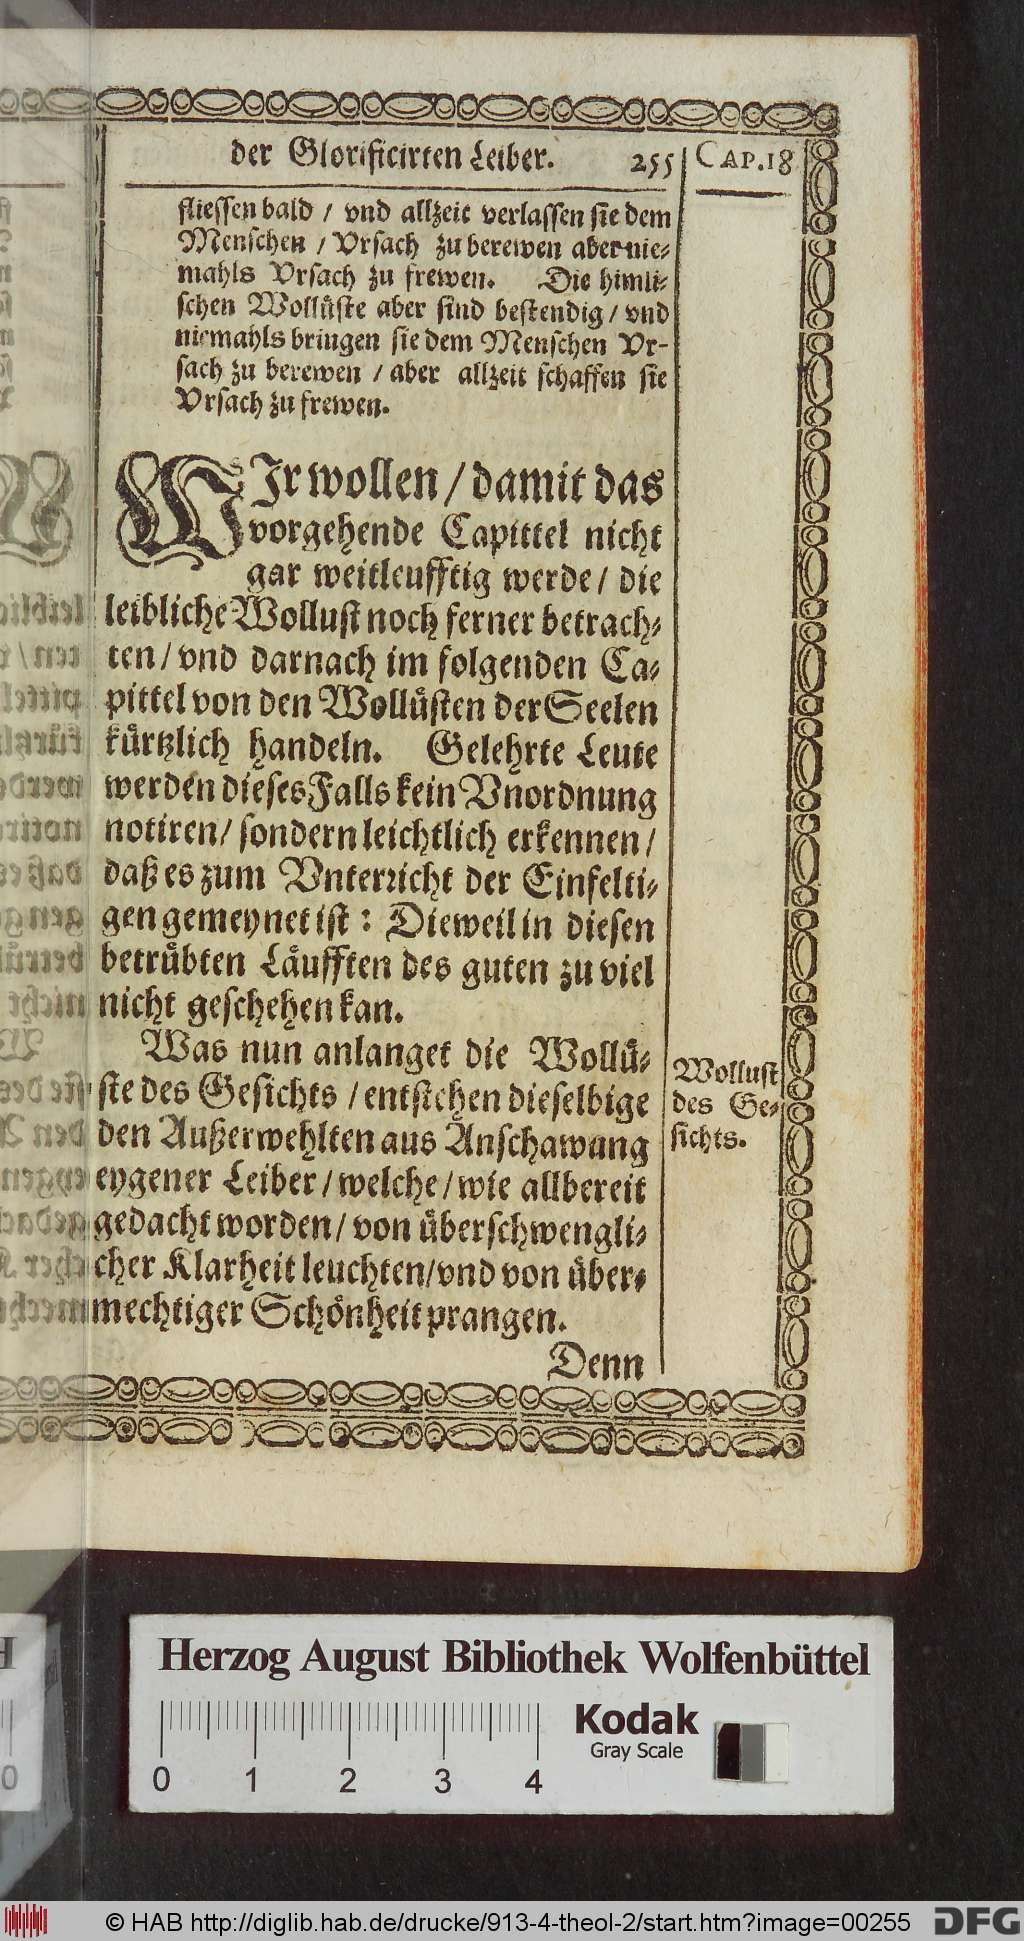 der Glorificirten Leiber. 255
CAP.18
fliessen bald / vnd allzeit verlassen sie dem
Menschen / Vrsach zu berewen aber nie-
mahls Vrsach zu frewen. Die himli-
schen Wollüste aber sind bestendig / vnd
niemahls bringen sie dem Menschen Vr-
sach zu berewen / aber allzeit schaffen sie
Vrsach zu frewen.
WIr wollen / damit das
vorgehende Capittel nicht
gar weitleufftig werde / die
leibliche Wollust noch ferner betrach-
ten / vnd darnach im folgenden Ca-
pittel von den Wollüsten der Seelen
kürtzlich handeln. Gelehrte Leute
werden dieses Falls kein Vnordnung
notiren / sondern leichtlich erkennen /
daß es zum Vnterricht der Einfelti-
gen gemeynet ist : Dieweil in diesen
betrübten Läufften des guten zu viel
nicht geschehen kan.
Was nun anlanget die Wollü-
ste des Gesichts / entstehen dieselbige
den Außerwehlten aus Anschawung
eygener Leiber / welche / wie allbereit
gedacht worden / von überschwengli-
cher Klarheit leuchten / vnd von über-
mechtiger Schönheit prangen.
Denn
Wollust
des Ge-
sichts.
Herzog August Bibliothek Wolfenbüttel
Kodak
Gray Scale
0 1 2 3 4
© HAB http://diglib.hab.de/drucke/913-4-theol-2/start.htm?image=00255
DFG